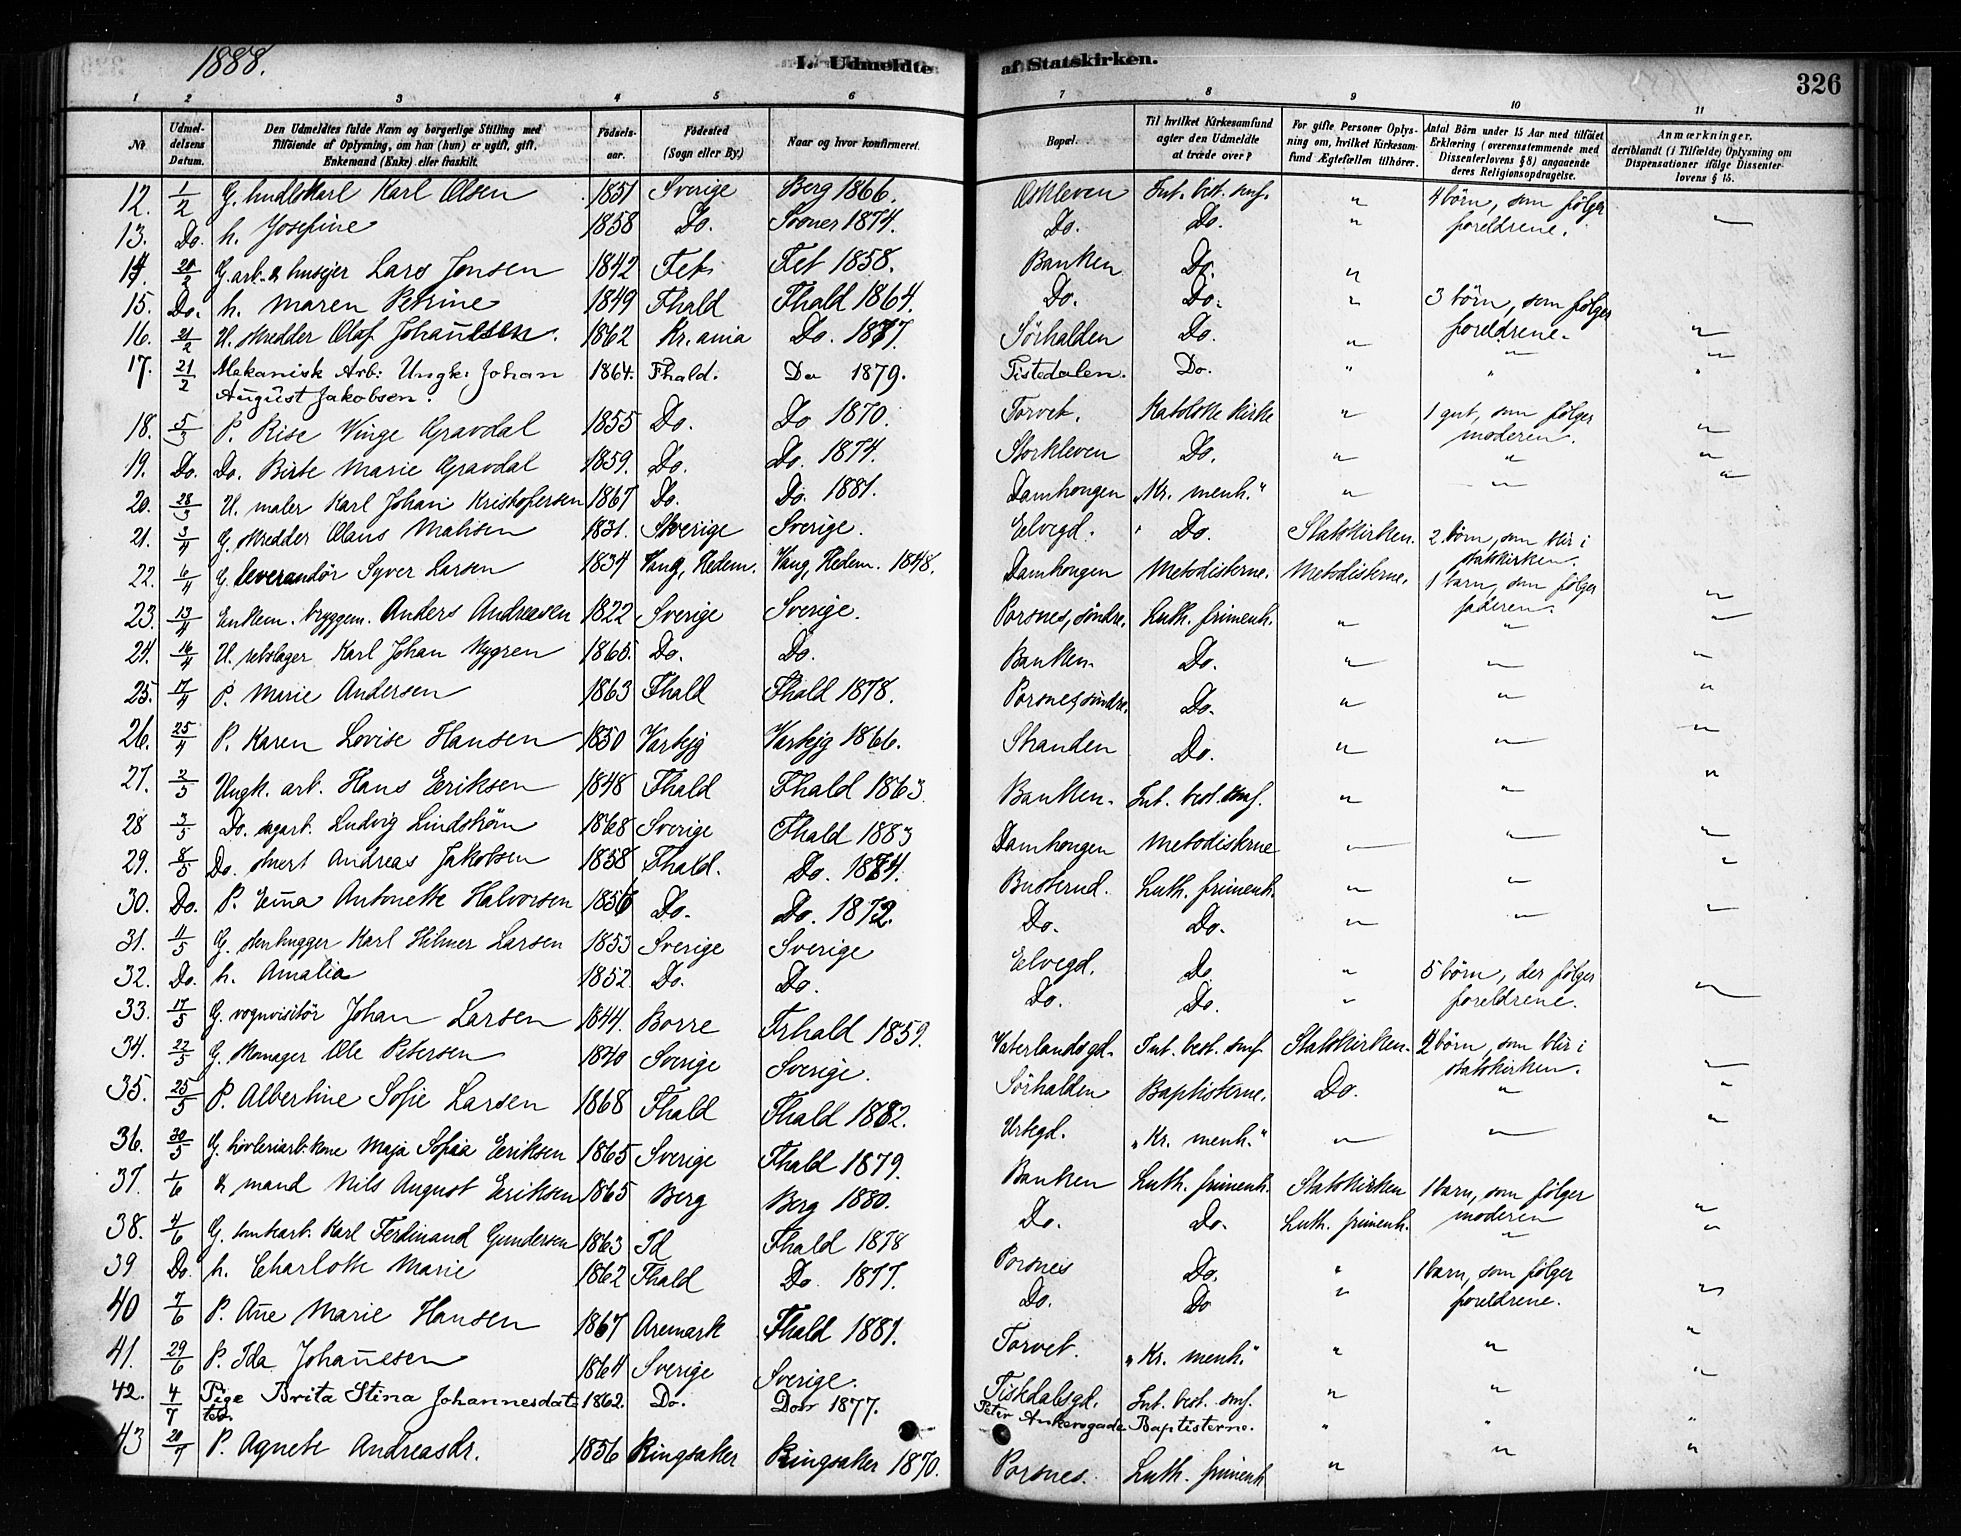 1888.
L. Udmeldte
af Statskirken.
326
1 2 3 4 5 6 7 8 9 10 11
No
Udmel-
delsens
Datum.
Den Udmeldtes fulde Navn og borgerlige Stilling med
Tilføiende af Oplysning, om han (hun) er ugift, gift,
Enkemand (Enke) eller fraskilt.
Fødsels-
aar.
Fødested
(Sogn eller By.)
Naar og hvor konfirmeret.
Bopæl.
Til hvilket Kirkesamfund
agter den Udmeldte
at træde over?
For gifte Personer Oplys-
ning om, hvilket Kirkesam-
fund Ægtefællen tilhører.
Antal Børn under 15 Aar med tilføiet
Erklæring (overensstemmende med
Dissenterlovens § 8) angaaende
deres Religionsopdragelse.
Anmærkninger,
deriblandt (i Tilfælde) Oplysning om
Dispensationer ifølge Dissenter-
lovens § 15.
12. 1/2 G. Karl Olsen 1851 Sverige Berg 1866. Askleven Int. best. smf. " 4 børn, som følger
13. Do. h. Josefine 1858 Do. 1874. Do. Do. " foreldrene. "
14. 20/2 G. arb. & husejer Lars Jensen 1842 Fet Fet 1858. Banken Do. "
15. Do. h. Maren Petrine 1849 Fhald Fhald 1864. Do. Do. " 3 børn, som følger
foreldrene. "
16. 21/2 U. skredder Olaf Johannesen. 1862 Kr.ania Do. 1877. Sørhalden Do. " " "
17. 21/2 Mekanisk Arb: Ungk: Johan 1864. Fhald. Do 1879. Tistedalen. Do. " " "
August Jakobsen.
18. 5/3 P. Rise Winge Gravdal 1855 Do. Do 1870. Torvet. Katolske kirke " 1 gut, som følger
moderen. "
19. Do. Do. Birte Marie Gravdal 1859. Do. Do. 1874. Storkleven Do. " " "
20. 28/3 U. maler Karl Johan Kristofersen 1867 Do. Do. 1881. Damhougen "Kr. menh." " " "
21. 3/4 G. skredder Olaus Matisen 1831. Sverige Sverige. Elvegd. Do. Statskirken. 2 børn, som blir i
statskirken.
22. 6/4 G. leverandør Syver Larsen 1834 Vang, Hedem. Vang, Hedem. 1848. Damhougen Metodisterne. Metodisterne. 1 barn, som følger
faderen. "
23. 13/4 Enkem. bryggem. Anders Andreasen 1822 Sverige Sverige. Porsnes, søndre. Luth. frimenh. " " "
24. 16/4 U. rebslager Karl Johan Nygren 1865. Do. Do. Banken. Do. " " "
25. 17/4 P. Marie Andersen 1863 Fhald Fhald 1878. Porsnes, søndre. Do. " " "
26. 25/4 P. Karen Lovise Hansen 1850 Varteig Varteig 1866. Stranden Do. " " "
27. 2/5 Ungk. arb. Hans Eriksen 1848 Fhald Fhald 1863. Banken. Int. best. smf. " " "
28 3/5 Do. sagarb. Ludvig Lindstrøm 1868 Sverige Fhald 1883 Damhougen Metodisterne " " "
29. 8/5 Do. Andreas Jakobsen 1858 Fhald. Do. 1874. Busterud. Luth. frimenh. " " "
30. Do. P. Emma Antonette Halvorsen 1856 Do. Do. 1872. Do. Do. " " "
31. 11/5 G. stenhugger Karl Hilmer Larsen 1853 Sverige Sverige Elvegd. Do " 5 børn, der følger
32. Do. h. Amalia 1852. Do. Do. Do. Do. " foreldrene. "
33. 17/5 G. vognvisitør Johan Larsen 1844. Borre Frhald 1859. Vaterlandsgd. Int. best. smf. Statskirken. 2 børn, som blir i
statskirken. "
34. 22/5 G. skomager Ole Petersen 1840 Sverige Sverige. Sørhalden Baptisterne. Do. " "
35. 25/5 P. Albertine Sofie Larsen 1868 Fhald Fhald 1882. Urtegd. "Kr. menh." " " "
36. 30/5 G. høvleriarb. kone Maja Sofia Eriksen 1865 Sverige Fhald 1879. Banken Luth. frimenh. Statskirken 1 barn, som følger
moderen "
37. 1/6 & mand Nils August Eriksen 1865 Berg Berg 1880. Do. Do. Luth. frimenh. " "
38. 4/6 G. Karl Ferdinand Gundersen 1863 Id Fhald 1878 Porsnes Do. " 1 barn, som følger
39 Do. h. Charlotte Marie 1862 Fhald Do. 1877. Do. Do " foreldrene. "
40 7/6 P. Anne Marie Hansen 1867 Aremark Fhald 1881. Torvet. "Kr. menh." " " "
41. 29/6 P. Ida Johannesen 1864 Sverige Sverige. Tiskdalsgd. Int. best. smf. " " "
42. 4/7 Pige Brita Stina Johannesdat- 1862. Do. Do 1877. Peter Ankersgade Baptisterne. " " "
ter.
43 20/7 P. Agnete Andreasdr. 1856 Ringsaker Ringsaker 1870. Porsnes. Luth. frimenh " " "